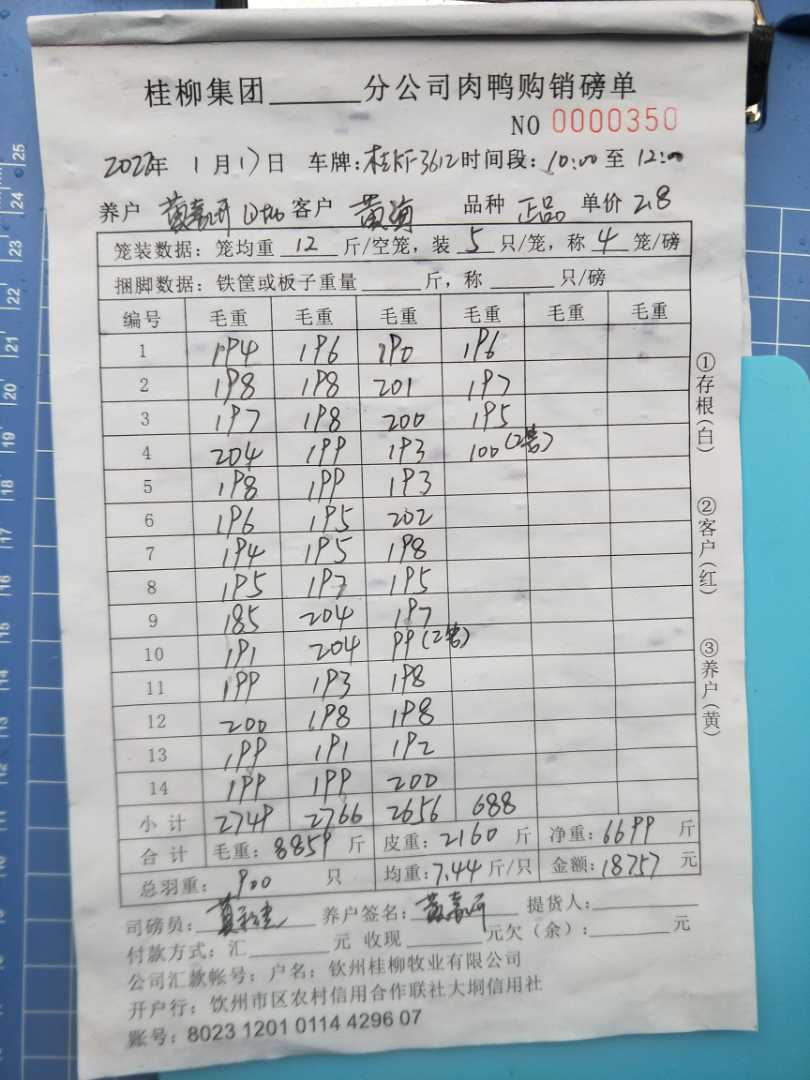 桂柳集团______分公司肉鸭购销磅单
NO 0000350
2022年 1月17日 车牌:桂KF3612 时间段:10:00至12:00
养户 黄嘉研 客户 黄海 品种 正品 单价 2.8
笼装数据:笼均重 12 斤/空笼,装 5 只/笼,称 4 笼/磅
捆脚数据:铁筐或板子重量______斤,称______只/磅
编号 毛重 毛重 毛重 毛重 毛重 毛重
1 194 196 190 196
2 198 198 201 197
3 197 198 200 195
4 204 199 193 100(2笼)
5 198 199 193
6 196 195 202
7 194 195 198
8 195 197 195
9 185 204 197
10 191 204 99(2笼)
11 199 193 198
12 200 198 198
13 199 191 192
14 199 199 200
小计 2749 2766 2656 688
合计 毛重:8859斤 皮重:2160斤 净重:6699斤
总羽重:900只 均重:7.44斤/只 金额:18757元
司磅员: 养户签名:黄嘉研 提货人:
付款方式:汇______元 收现______元欠(余):______元
公司汇款帐号:户名:钦州桂柳牧业有限公司
开户行:钦州市区农村信用合作联社大垌信用社
账号:8023 1201 0114 4296 07
①存根(白) ②客户(红) ③养户(黄)
25
24
23
22
21
20
19
18
17
16
15
14
13
12
11
10